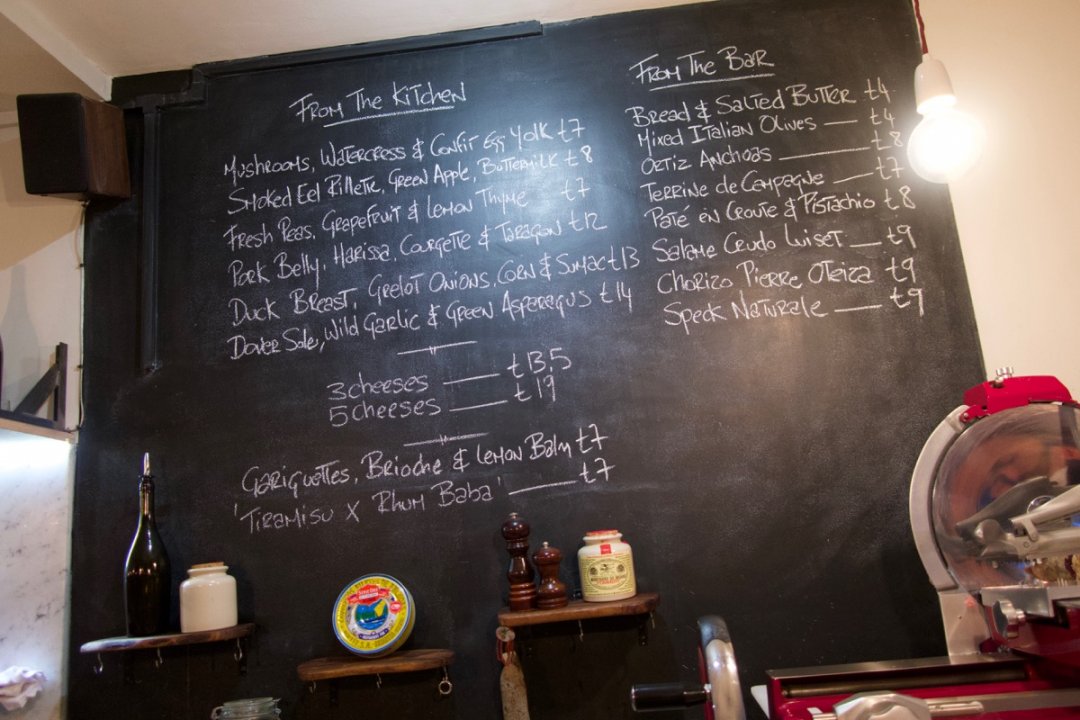 From The Kitchen
Mushrooms, Watercress & Confit Egg Yolk £7
Smoked Eel Rillette, Green Apple, Buttermilk £8
Fresh Peas, Grapefruit & Lemon Thyme £7
Pork Belly, Harissa, Courgette & Taragon £12
Duck Breast, Grelot Onions, Corn & Sumac £13
Dover Sole, Wild Garlic & Green Asparagus £14
3 cheeses £13.5
5 cheeses £19
Gariguettes, Brioche & Lemon Balm £7
'Tiramisu x Rhum Baba' £7
From The Bar
Bread & Salted Butter £4
Mixed Italian Olives £4
Ortiz Anchoas £8
Terrine de Campagne £7
Paté en Croute & Pistachio £8
Salame Crudo Luiset £9
Chorizo Pierre Oteiza £9
Speck Naturale £9